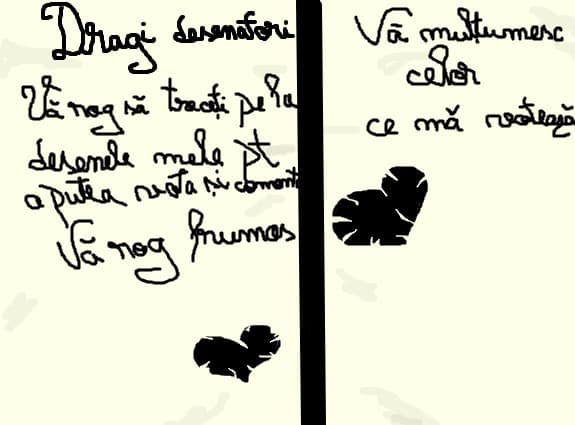 Dragi desenatori
Vă rog să treceți pe la
desenele mele pt
a putea vota și coment
Vă rog frumos
Vă mulțumesc
celor
ce mă votează